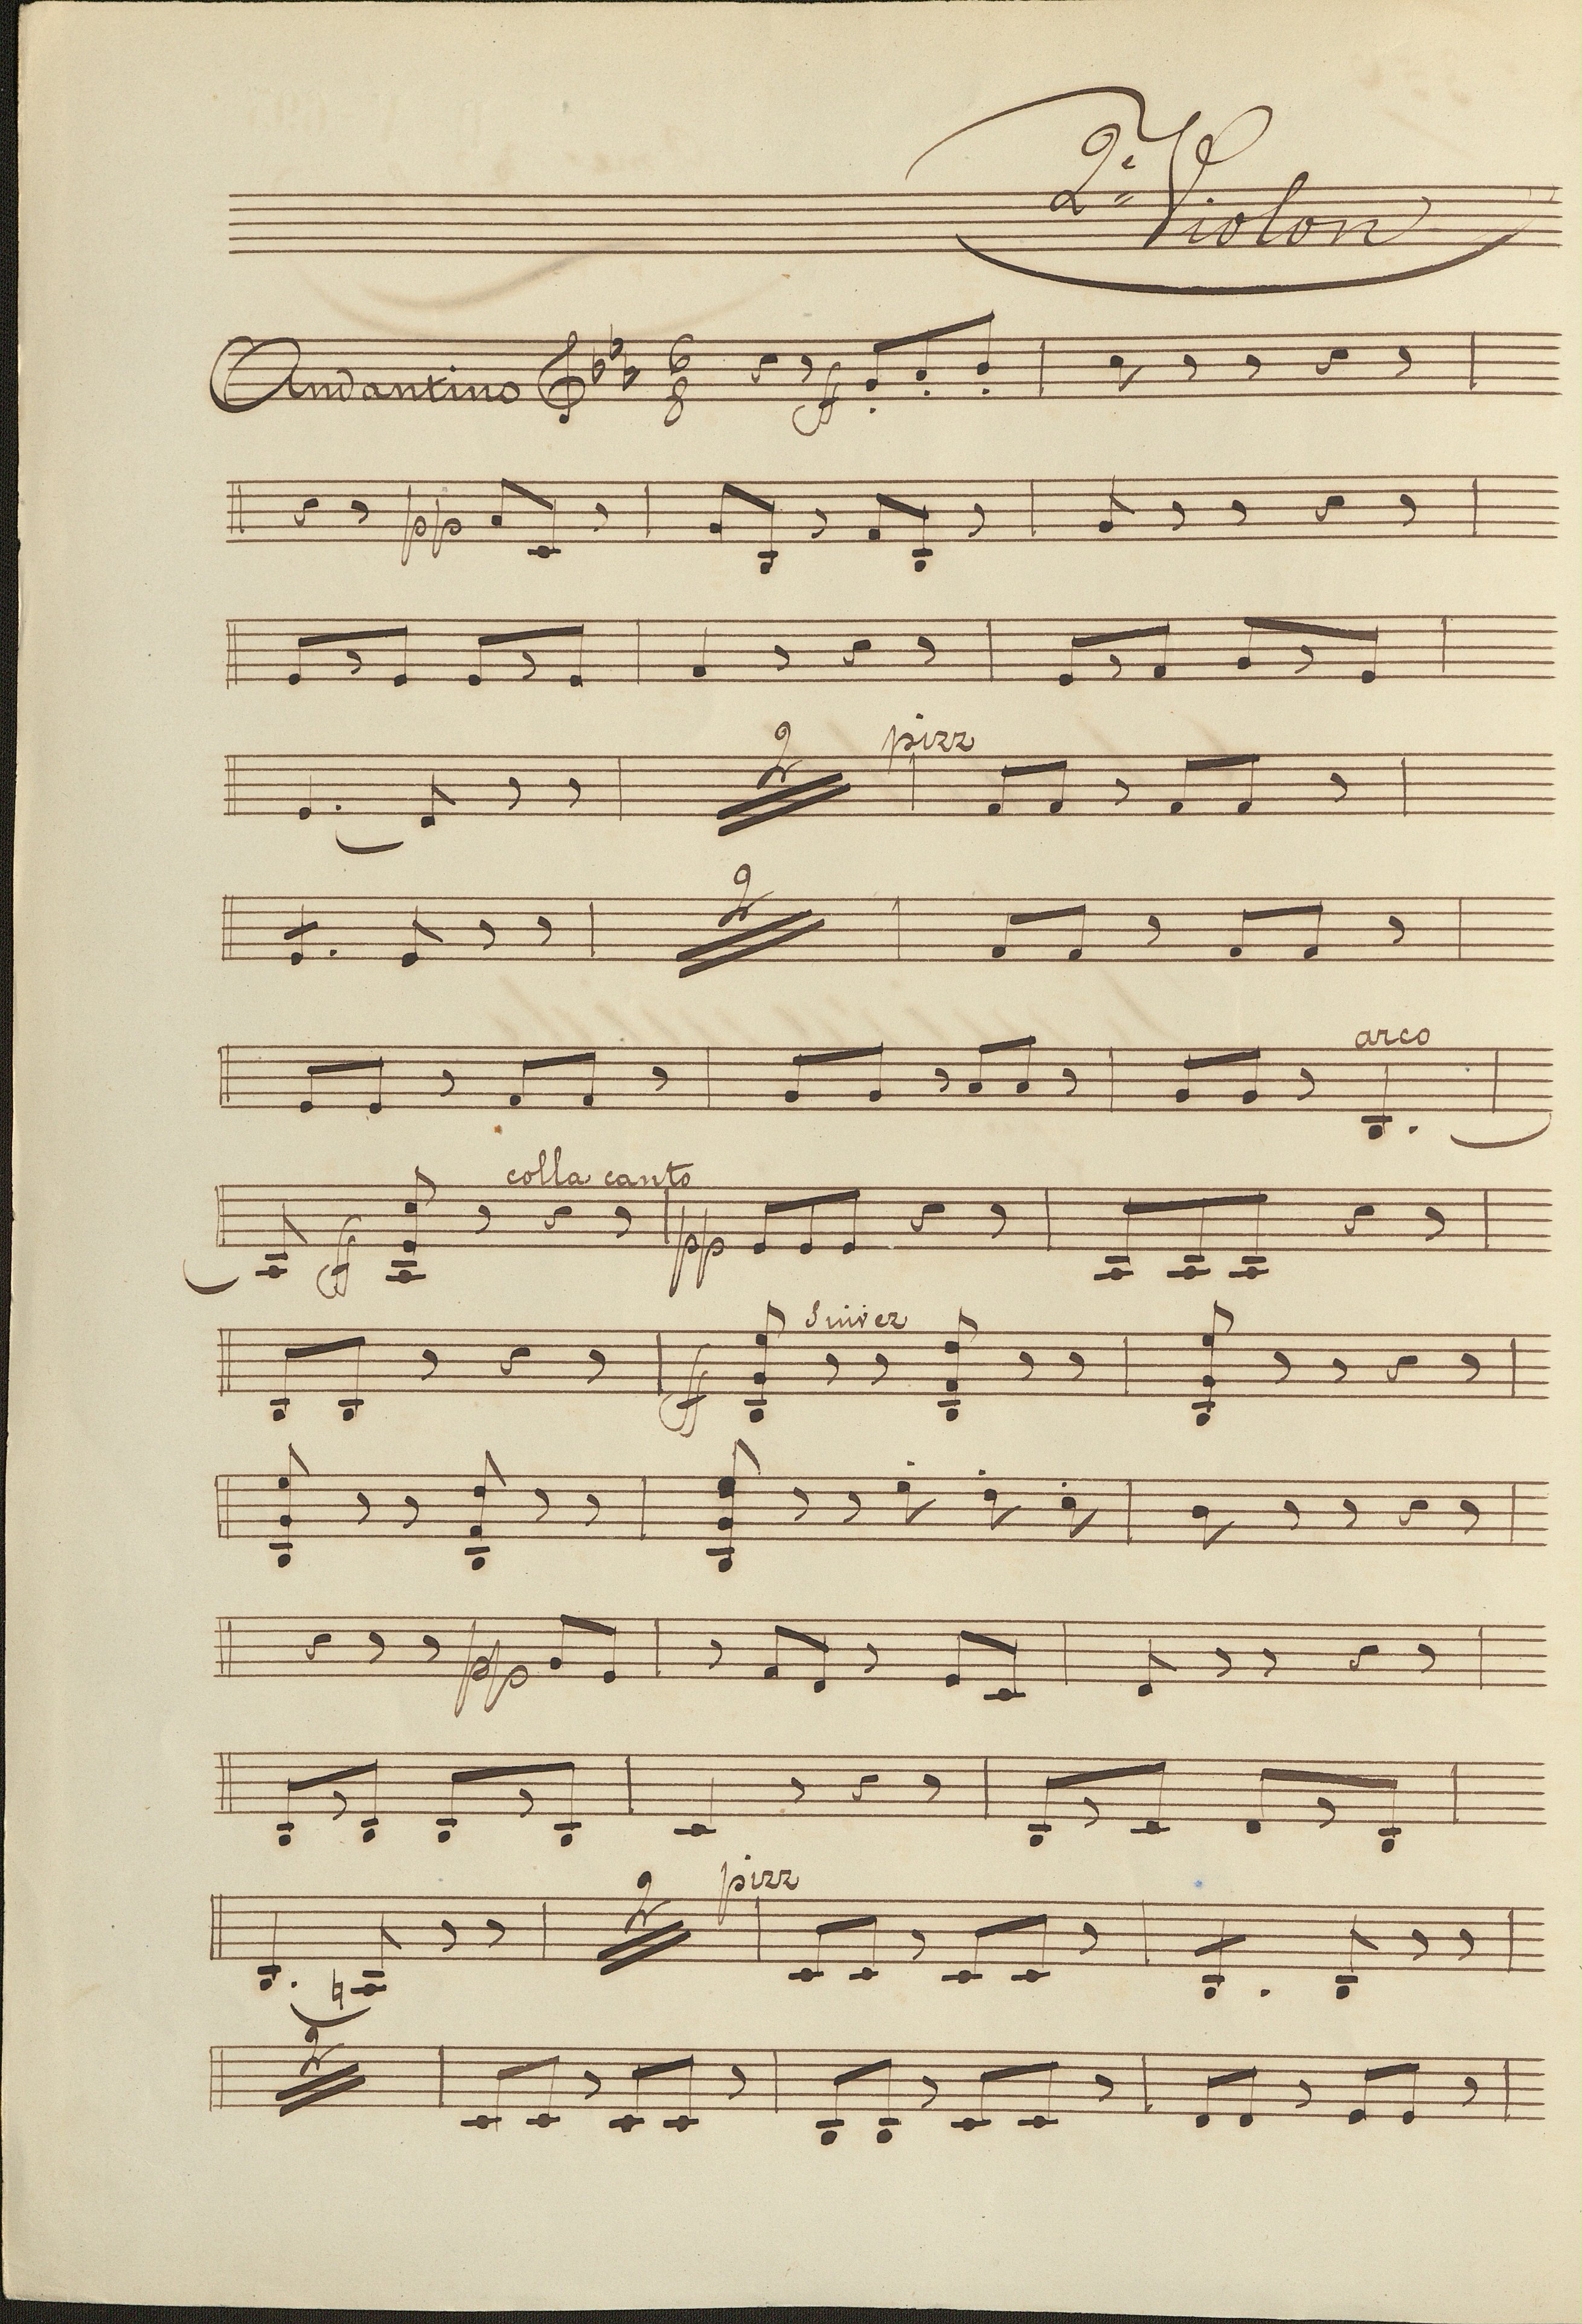 2e Violon
Andantino 6/8 ff
pp
2 pizz
2
arco
ff colla canto pp
ff Suivez
pp
2 pizz
2